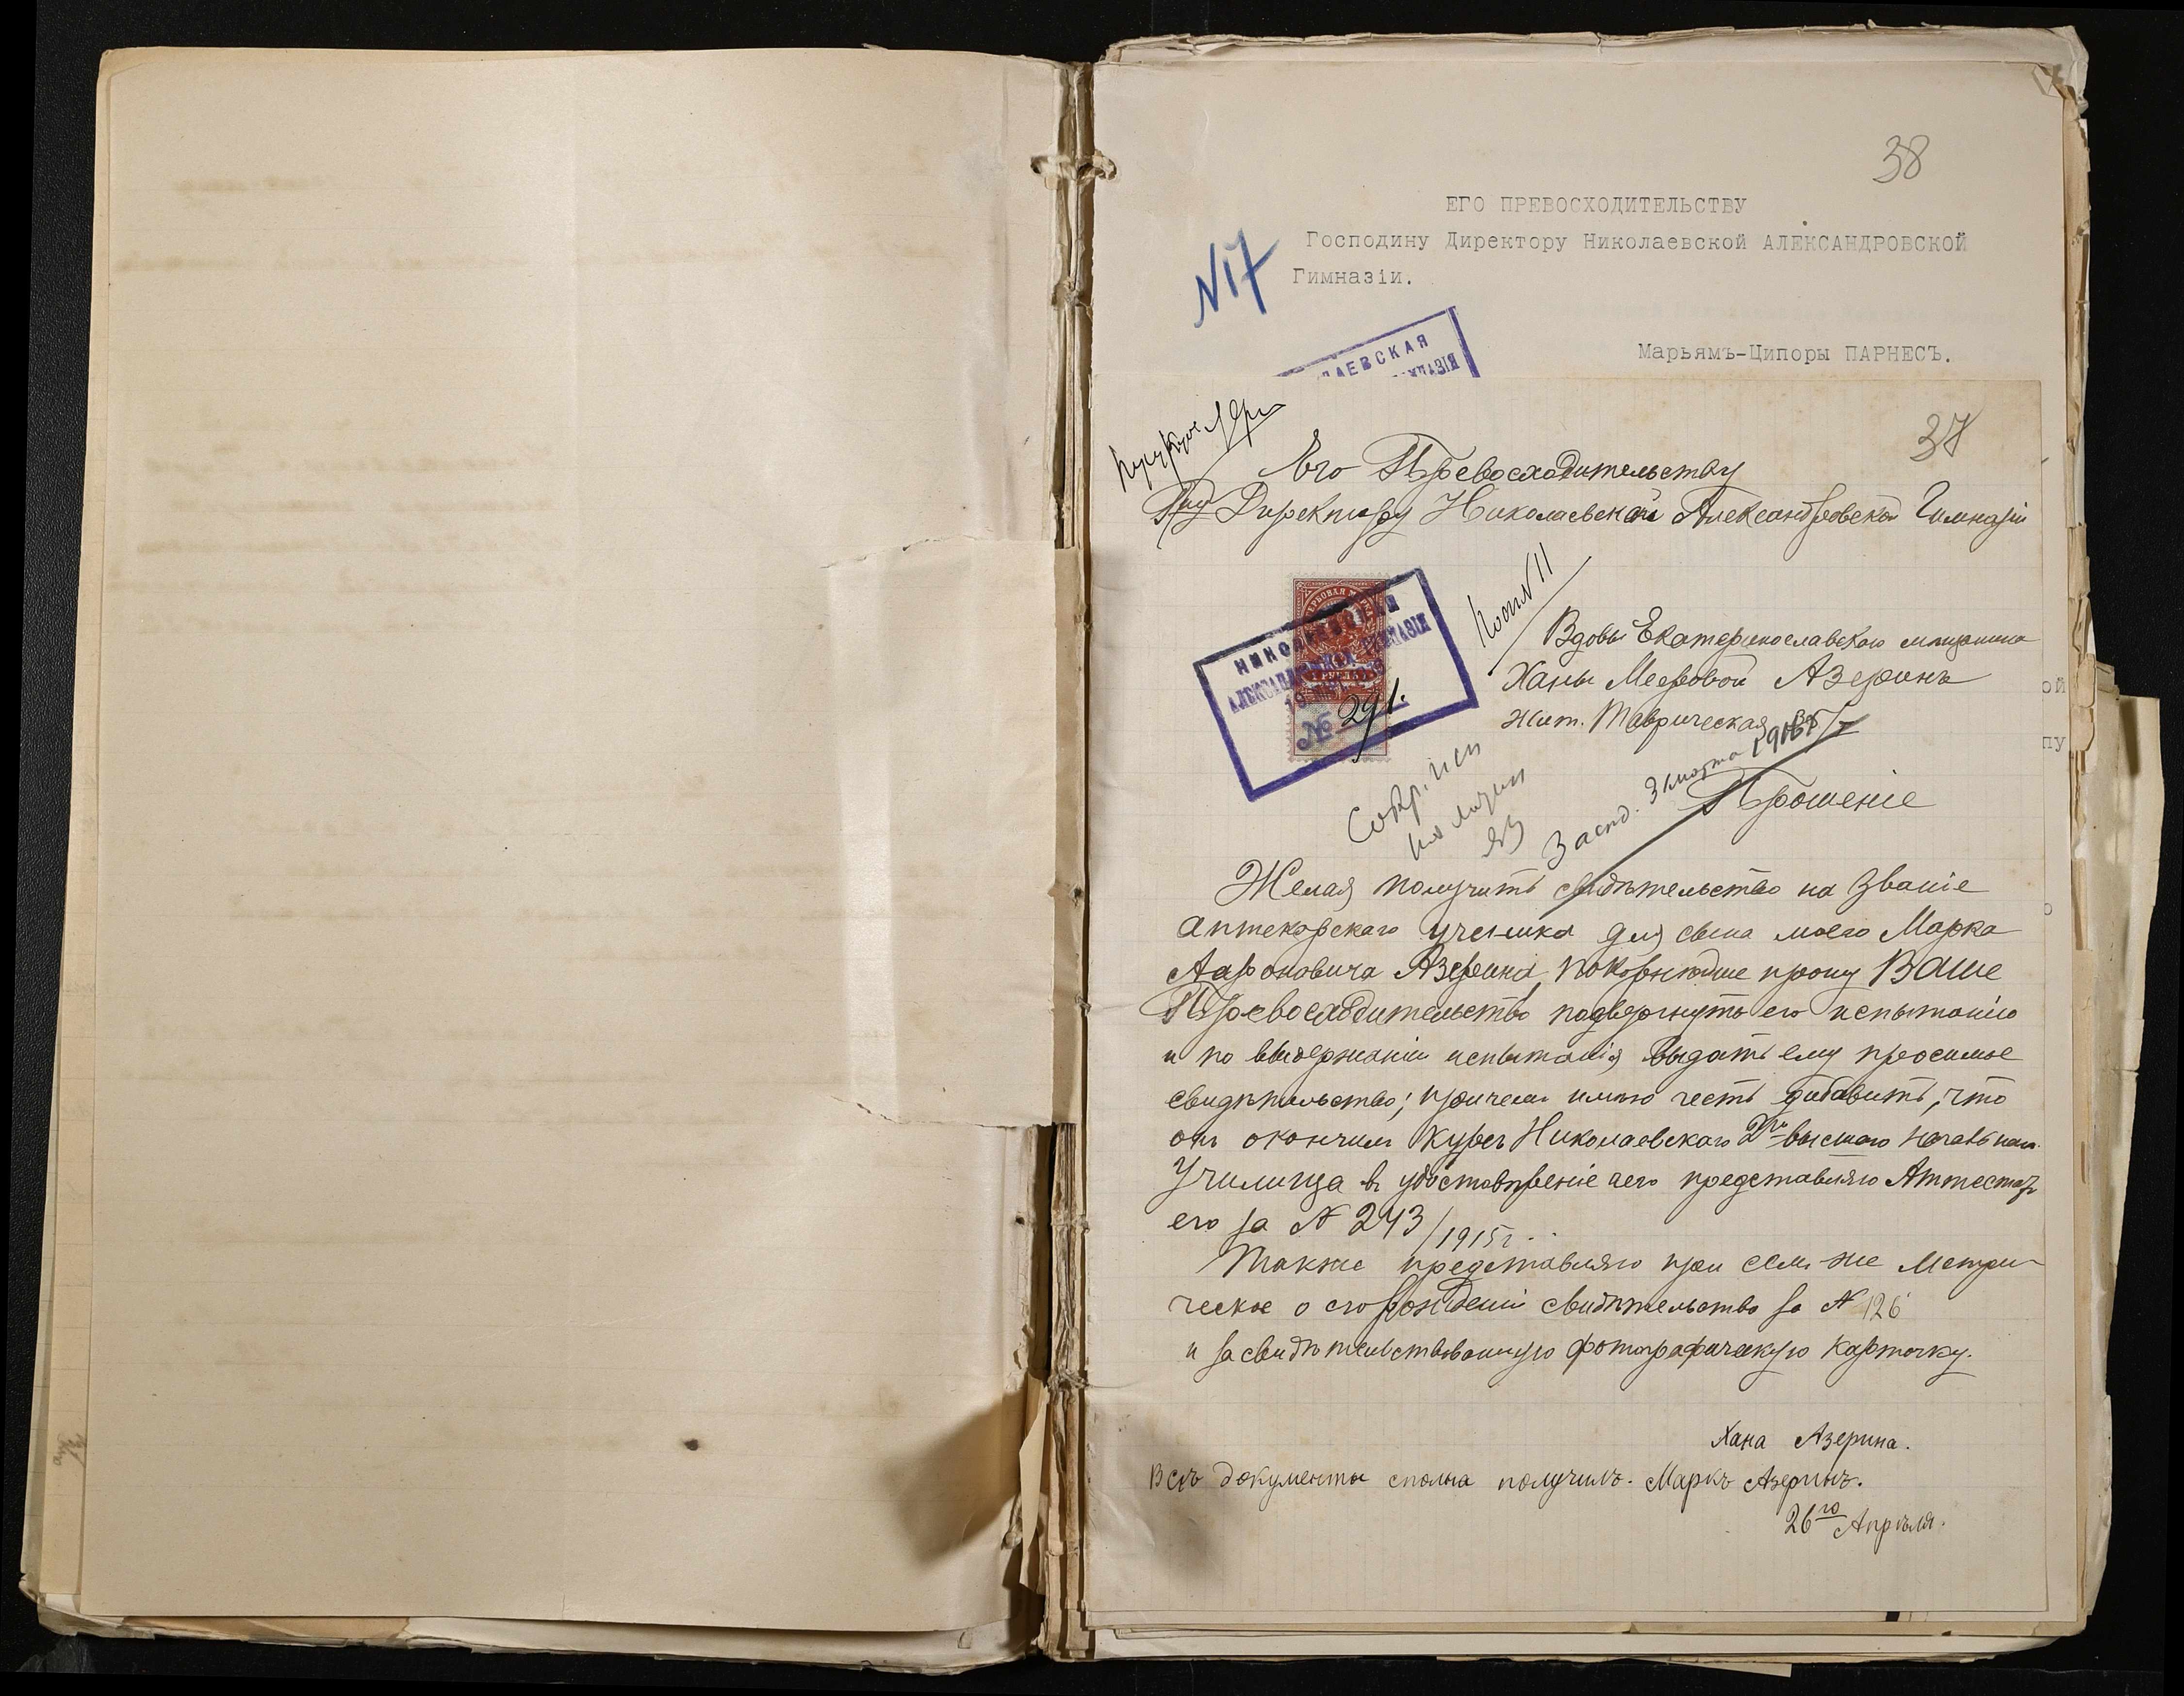 38
ЕГО ПРЕВОСХОДИТЕЛЬСТВУ
Господину Директору Николаевской АЛЕКСАНДРОВСКОЙ
Гимназіи.
N17
ЛАЕВСКАЯ
Марьямъ-Ципоры ПАРНЕСЪ.
37
Его Превосходительству
Гну Директору Николаевской Александровской Гимназіи
НИКОЛАЕВСКАЯ
АЛЕКСАНДРОВСКАЯ ГИМНАЗІЯ
№ 291.
ГЕРБОВАЯ МАРКА
1 РУБЛЬ
N 11
Вдовы Екатеринославскаго мещанина
Ханы Мееровой Азеринъ
жит. Таврическая
Засѣд. 3 марта 1916 г.
Прошеніе
Желая получить свидѣтельство на званіе
аптекарскаго ученика для сына моего Марка
Аароновича Азерина, покорнѣйше прошу Ваше
Превосходительство подвергнуть его испытанію
и по выдержаніи испытанія выдать ему просимое
свидѣтельство; причемъ имѣю честь добавить, что
онъ окончилъ курсъ Николаевскаго 2го высшаго начальнаго
Училища въ удостовѣреніе чего представляю Аттестатъ
его за N 243/1915 г.
Также представляю при семъ же Метри-
ческое о его рожденіи свидѣтельство за N 126
и засвидѣтельствованную фотографическую карточку.
Хана Азерина.
Всѣ документы сполна получилъ. Маркъ Азеринъ.
26го Апрѣля.